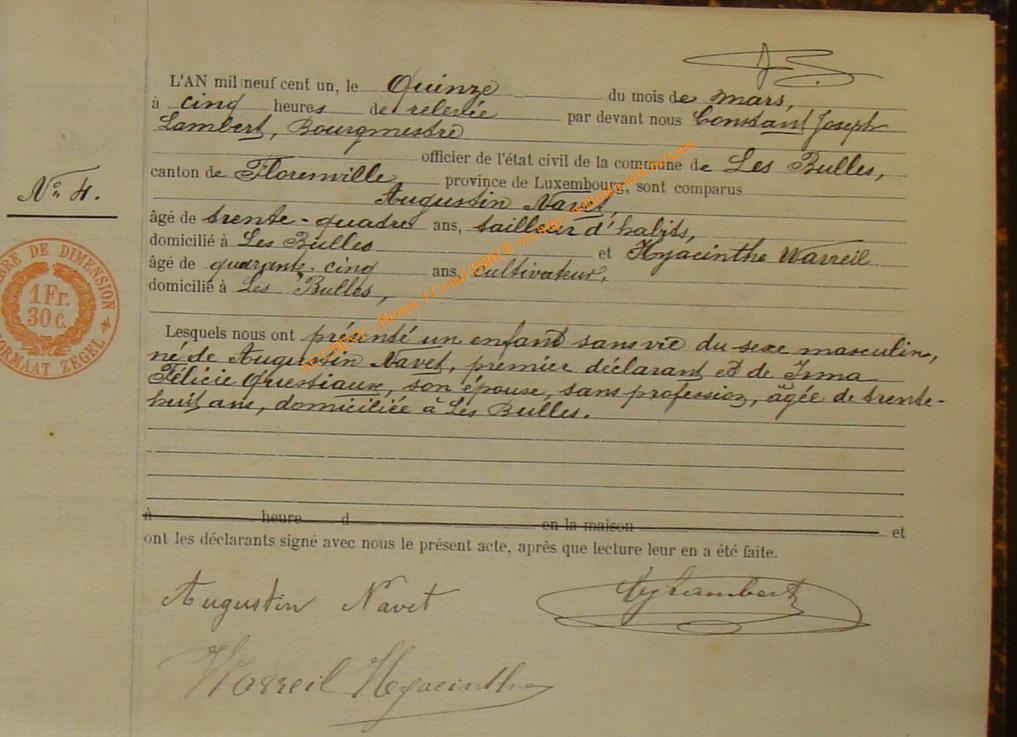 L'AN mil neuf cent un, le Quinze du mois de mars,
à cinq heures de relevée par devant nous Constant Joseph
Lambert, Bourgmestre
officier de l'état civil de la commune de Les Bulles,
canton de Florenville province de Luxembourg, sont comparus
Augustin Navet
âgé de trente-quatre ans, tailleur d'habits,
domicilié à Les Bulles et Hyacinthe Warreil
âgé de quarante-cinq ans, cultivateur,
domicilié à Les Bulles,
Lesquels nous ont présenté un enfant sans vie du sexe masculin,
né de Augustin Navet, premier déclarant et de Irma
Félicie Questiaux, son épouse, sans profession, âgée de trente-
huit ans, domiciliée à Les Bulles.
à heure d en la maison et
ont les déclarants signé avec nous le présent acte, après que lecture leur en a été faite.
Augustin Navet
CJ Lambert
Warreil Hyacinthe
No 4.
DE DIMENSION
1 Fr.
30 c.
FORMAAT ZEGEL